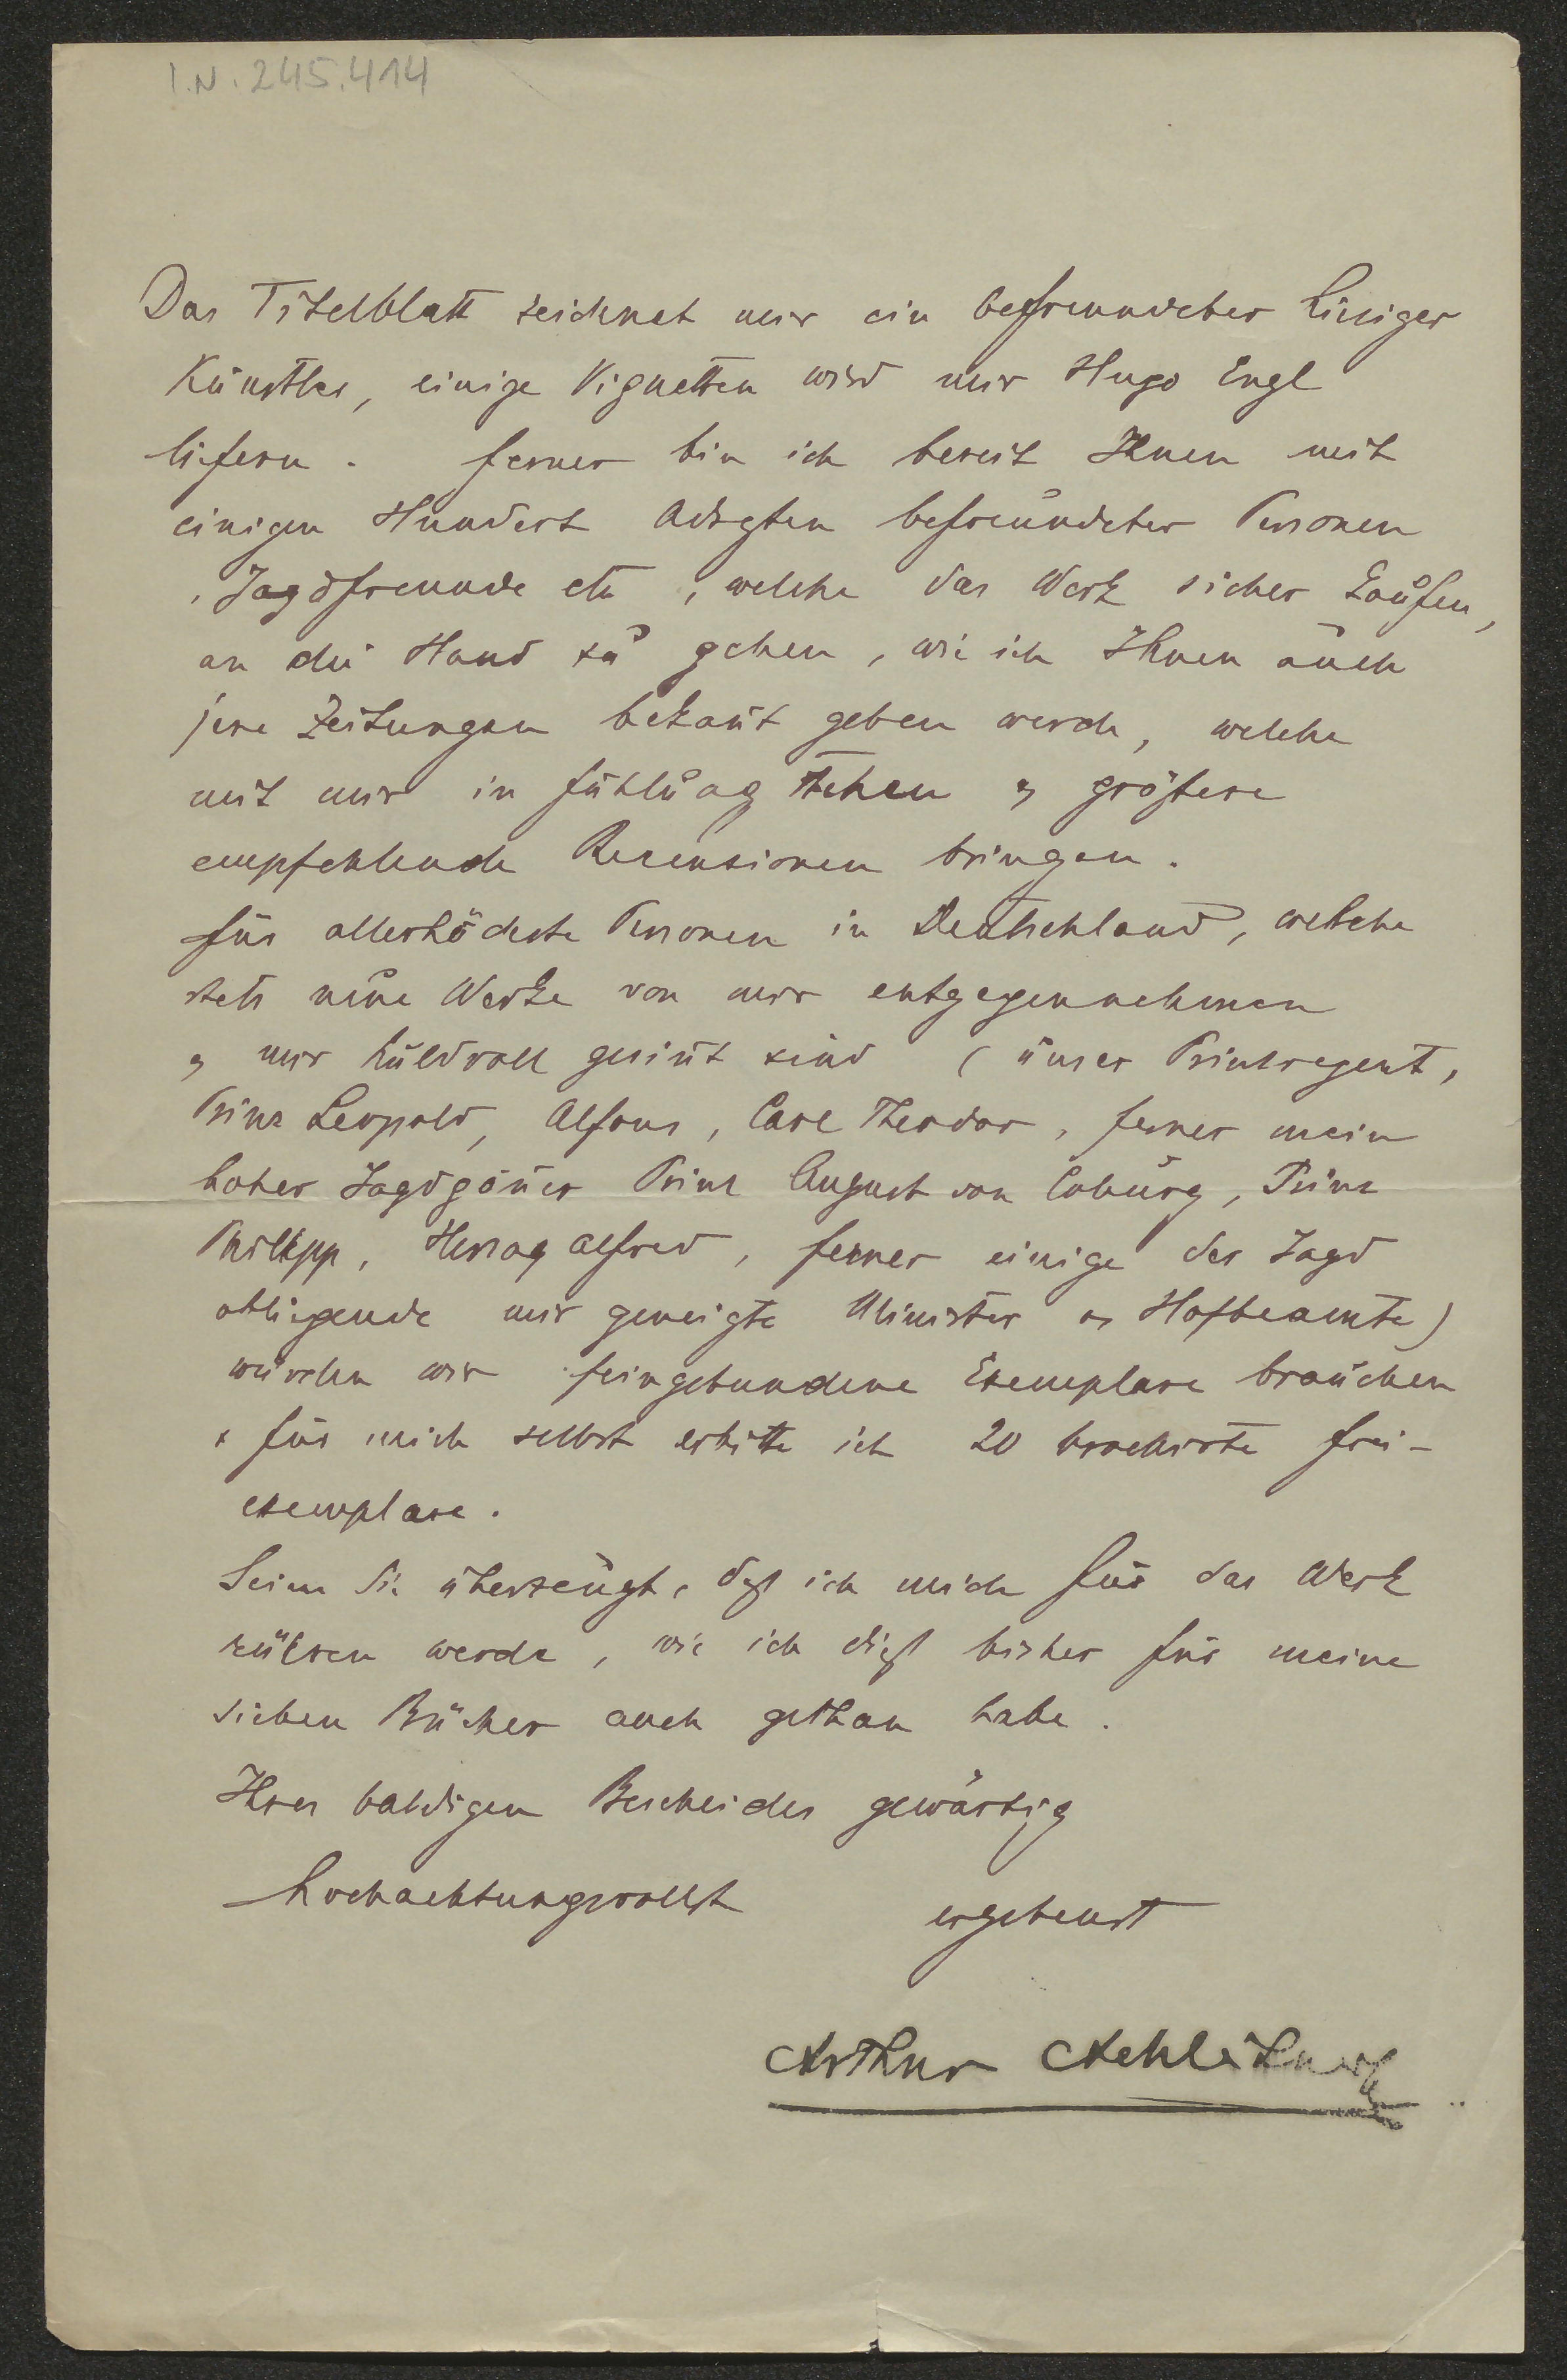 I.N. 245.414
Das Titelblatt zeichnet mir ein befreundeter hiesiger
Künstler, einige Vignetten wird mir Hugo Engl
liefern. Ferner bin ich bereit Ihnen mit
einigen Hundert Adreßen befreundeter Personen
, Jagdfreunde etc, welche das Werk sicher kaufen,
an die Hand zu gehen, wie ich Ihnen auch
jene Zeitungen bekan̄t geben werde, welche
mit mir in Fühlung stehen & größere
empfehlende Recensionen bringen.
Für allerhöchste Personen in Deutschland, welche
stets neue Werke von mir entgegennehmen
& mir huldvoll gesin̄t sind (unser Prinzregent,
Prinz Leopold, Alfons, Carl Theodor, ferner mein
hoher Jagdgön̄er Prinz August von Coburg, Prinz
Philipp, Herzog Alfred, ferner einige der Jagd
obliegende mir geneigte Minister & Hofbeamte)
würden wir feingebundene Exemplare brauchen
& für mich selbst erbitte ich 20 brochirte Frei-
exemplare.
Seien Sie überzeugt, daß ich mich für das Werk
rühren werde, wie ich dieß bisher für meine
sieben Bücher auch gethan habe.
Ihres baldigen Bescheides gewärtig
hochachtungsvollst ergebenst
Arthur Achleitner